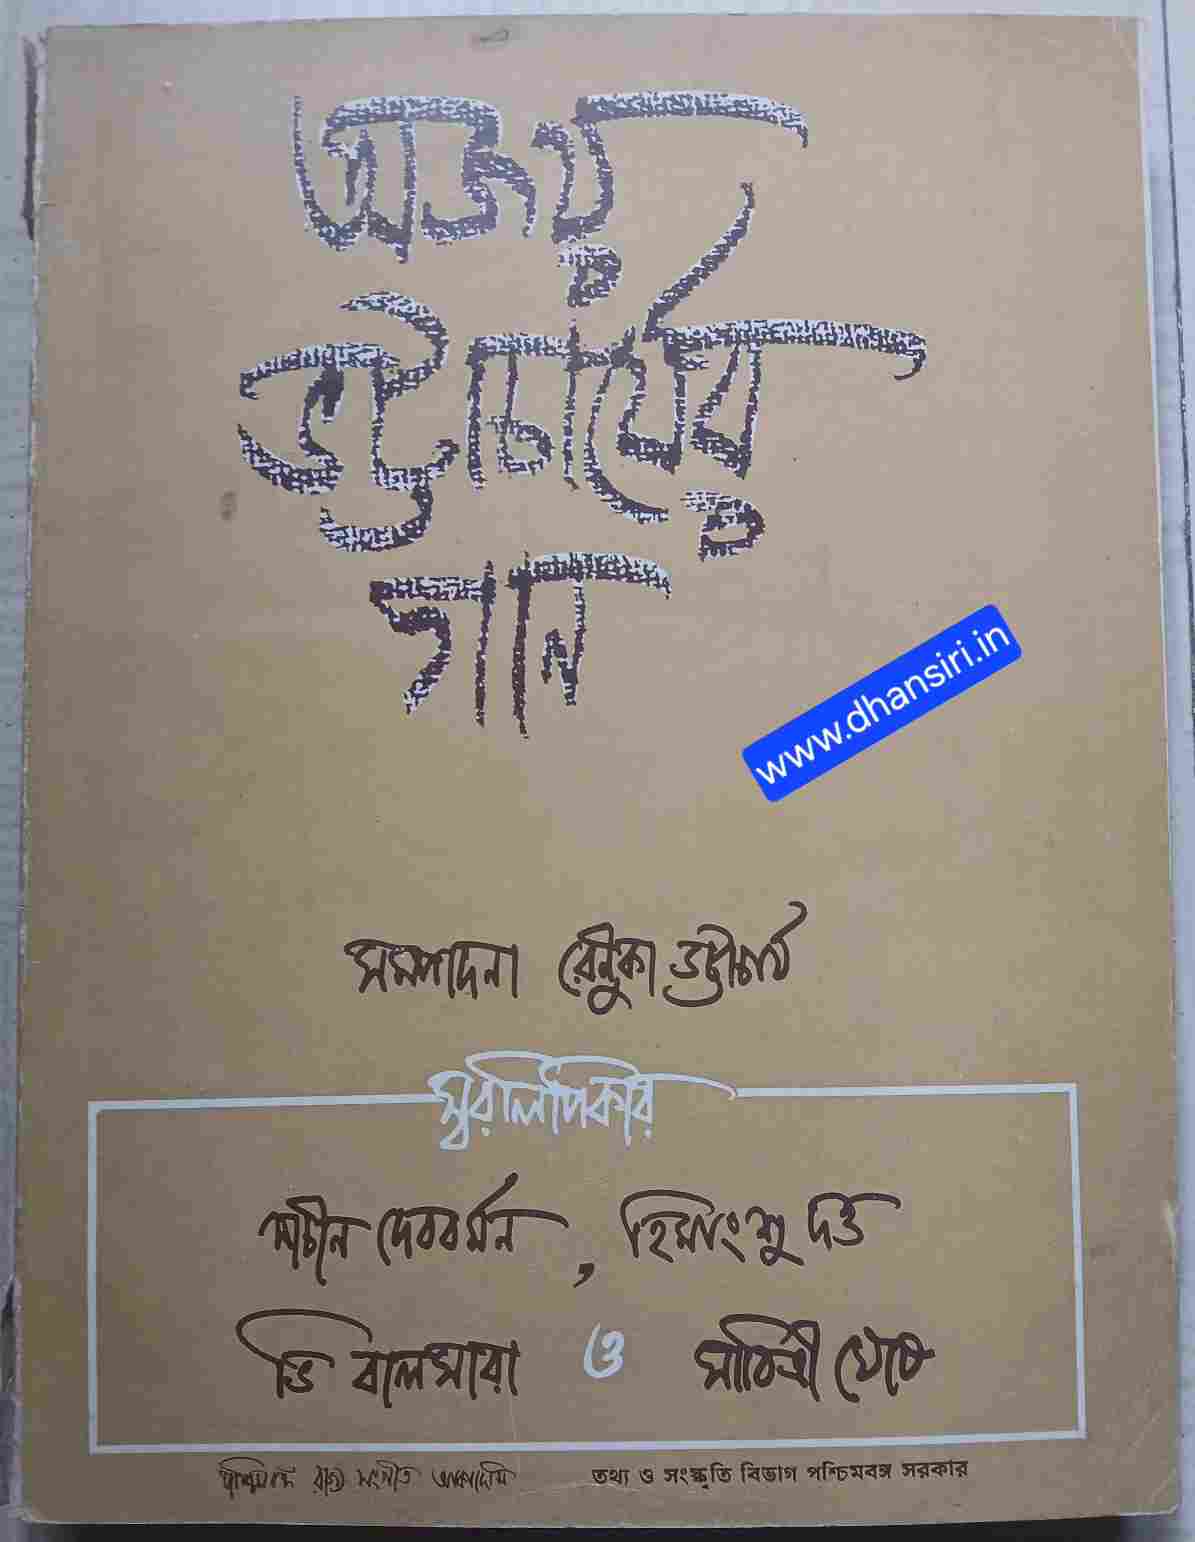 অজয়
ভট্টাচার্যের
গান
www.dhansiri.in
সম্পাদনা রেনুকা ভট্টাচার্য
স্বরলিপিকার
শচীন দেববর্মন , হিমাংশু দত্ত
ভি বালসারা ও সাবিত্রী ঘোষ
পশ্চিমবঙ্গ রাজ্য সংগীত আকাদেমি তথ্য ও সংস্কৃতি বিভাগ পশ্চিমবঙ্গ সরকার